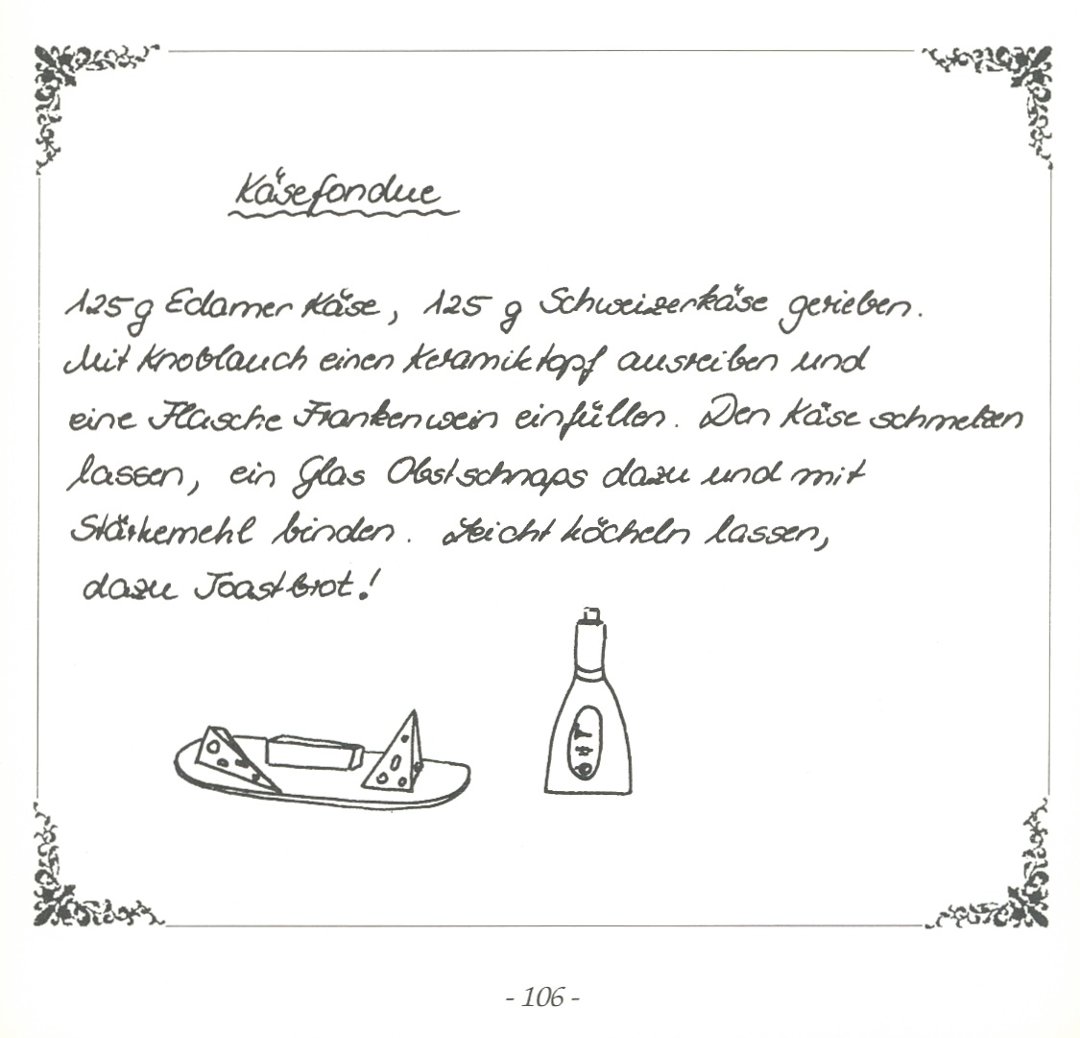 Käsefondue
125 g Edamer Käse, 125 g Schweizerkäse gerieben.
Mit Knoblauch einen Keramiktopf ausreiben und
eine Flasche Frankenwein einfüllen. Den Käse schmelzen
lassen, ein Glas Obstschnaps dazu und mit
Stärkemehl binden. Leicht köcheln lassen,
dazu Toastbrot!
- 106 -